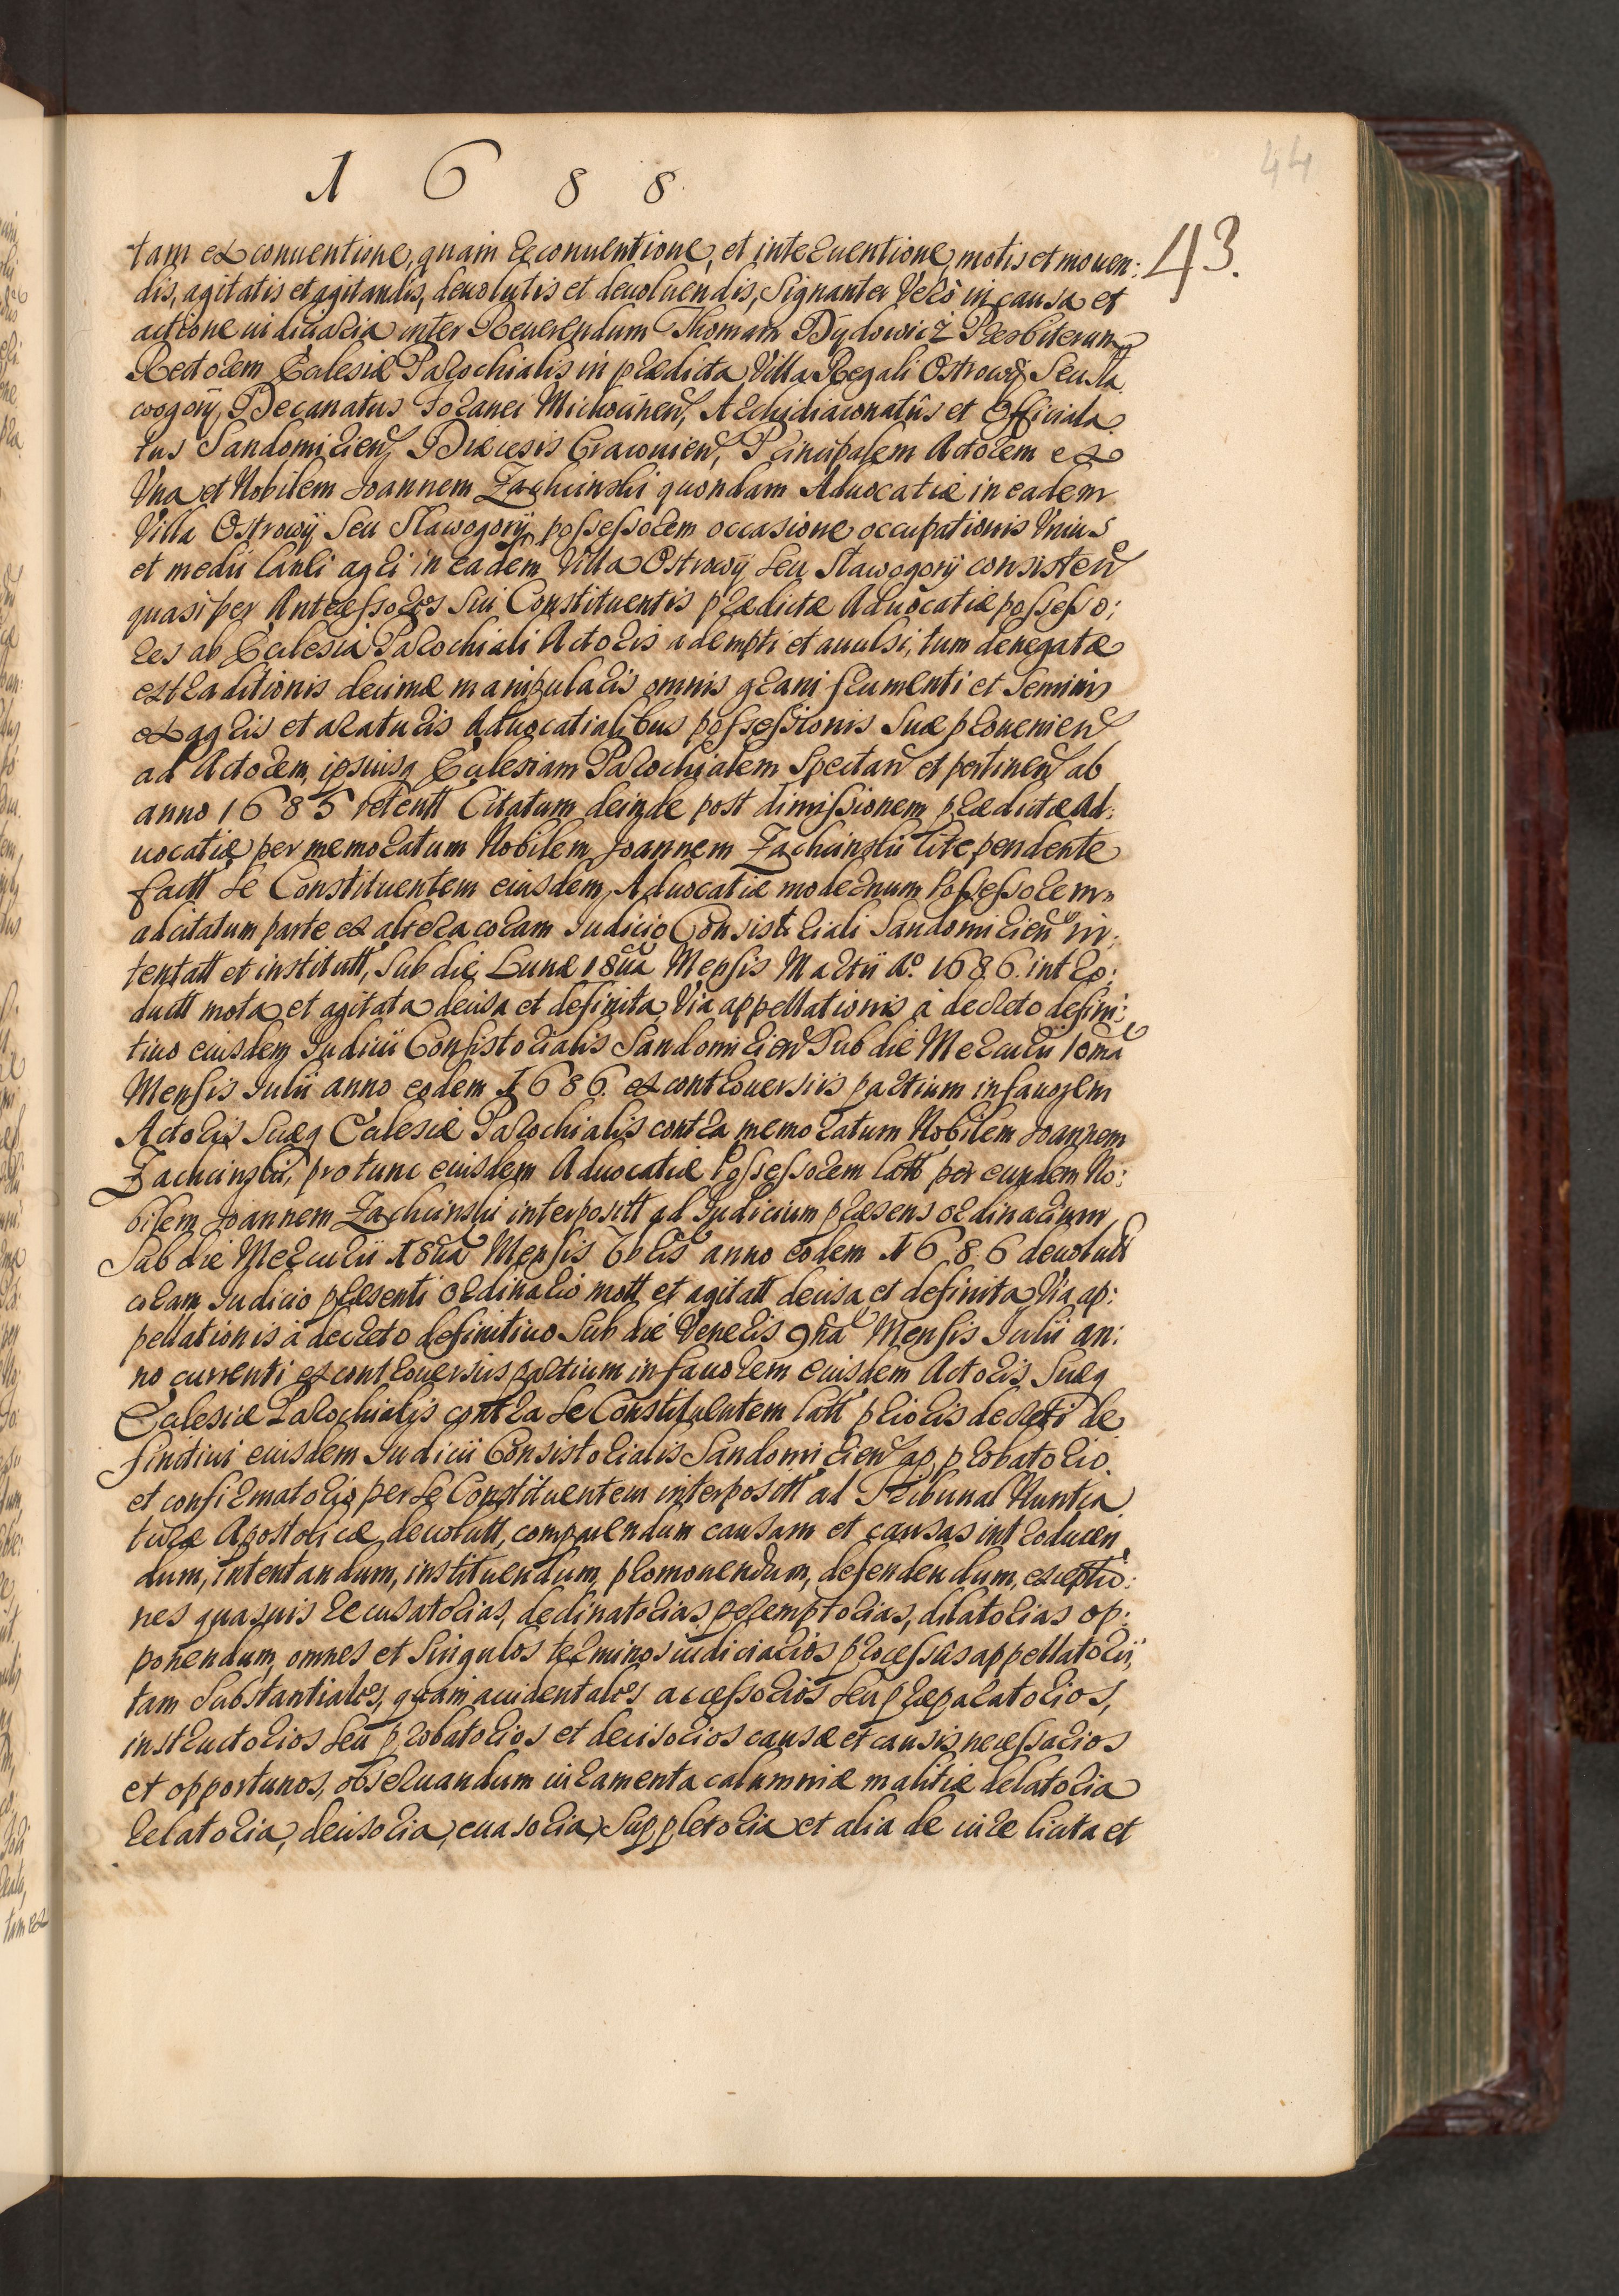 1688
44
43.
tam ex conuentione, quam reconuentione, et interuentione, motis et mouen:
dis, agitatis et agitandis, deuolutis et deuoluendis, Signanter Verò in causa et
actione iudiciaria inter Reuerendum Thomam Dydowicz Presbiterum
Rectorem Ecclesiæ Parochialis in prædicta Villa Regali Ostrowÿ Seu Sla
wogory, Decanatus Foranei Michouien, Archidiaconatûs et Officiala
tus Sandomirien, Diæcesis Cracouien, Principalem Actorem ex
Vna et Nobilem Joannem Zachcinski quondam Aduocatiæ in eadem
Villa Ostrowÿ Seu Slawogorÿ possessorem occasione occupationis Vnius
et medii lanei agri in eadem Villa Ostrowÿ Seu Slawogorÿ consisten
quasi per Antecessores Sui Constituentis prædictæ Aduocatiæ possesso:
res ab Ecclesia Parochiali Actoris adempti et auulsi, tum denegatæ
extraditionis decimæ manipularis omnis grani frumenti et Seminis
ex agris et araturis Aduocatialibus possessionis Suæ prouenien
ad Actorem, ipsiusq Ecclesiam Parochialem Spectan et pertinen ab
anno 1685 retentt Citatum deinde post dimissionem prædictæ Ad:
uocatiæ per memoratum Nobilem Joannem Zachcinski lite pendente
factt Se Constituentem eiusdem Aduocatiæ modernum Possessorem
adcitatum parte ex altera coram Judicio Consistoriali Sandomirien in:
tentatt et institutt, Sub die Lunæ 18ua Mensis Martii Ao. 1686. intro:
ductt mota et agitata decisa et definita, Via appellationis à decreto defini:
tiuo eiusdem Judicii Consistorialis Sandomirien Sub die Mercurii 10ma
Mensis Julii anno eodem 1686. ex controuersiis partium in fauorem
Actoris Suæq Ecclesiæ Parochialis contra memoratum Nobilem Joannem
Zachcinski, pro tunc eiusdem Aduocatiæ Possessorem latt per eundem No:
bilem Joannem Zachcinski interpositt ad Judicium præsens ordinarium
Sub die Mercurii 18ua Mensis 7bris anno eodem 1686 deuolutt
coram Judicio præsenti Ordinario mott et agitatt decisa et definita Via ap:
pellationis à decreto definitiuo Sub die Veneris 9na Mensis Julii an:
no currenti ex controuersiis partium in fauorem eiusdem Actoris Suæq
Ecclesiæ Parochialis contra Se Constituentem latt prioris decreti de
finitiui eiusdem Judicii Consistorialis Sandomirien approbatorio
et confirmatorio per Se Constituentem interpositt ad Tribunal Nuntia
turæ Apostolicæ deuolutt, comparendum causam et causas introducen
dum, intentandum, instituendum, promouendum, defendendum, exceptio:
nes quasuis recusatorias, declinatorias peremptorias, dilatorias op:
ponendum, omnes et Singulos terminos iudiciarios processûs appellatorii,
tam Substantiales, quam accidentales accessorios Seu præparatorios,
instructorios Seu probatorios et decisorios causæ et causis necessarios
et opportunos, obseruandum iuramenta calumniæ malitiæ delatoria
relatoria, decisoria, euasoria, Suppletoria et alia de iure licita et